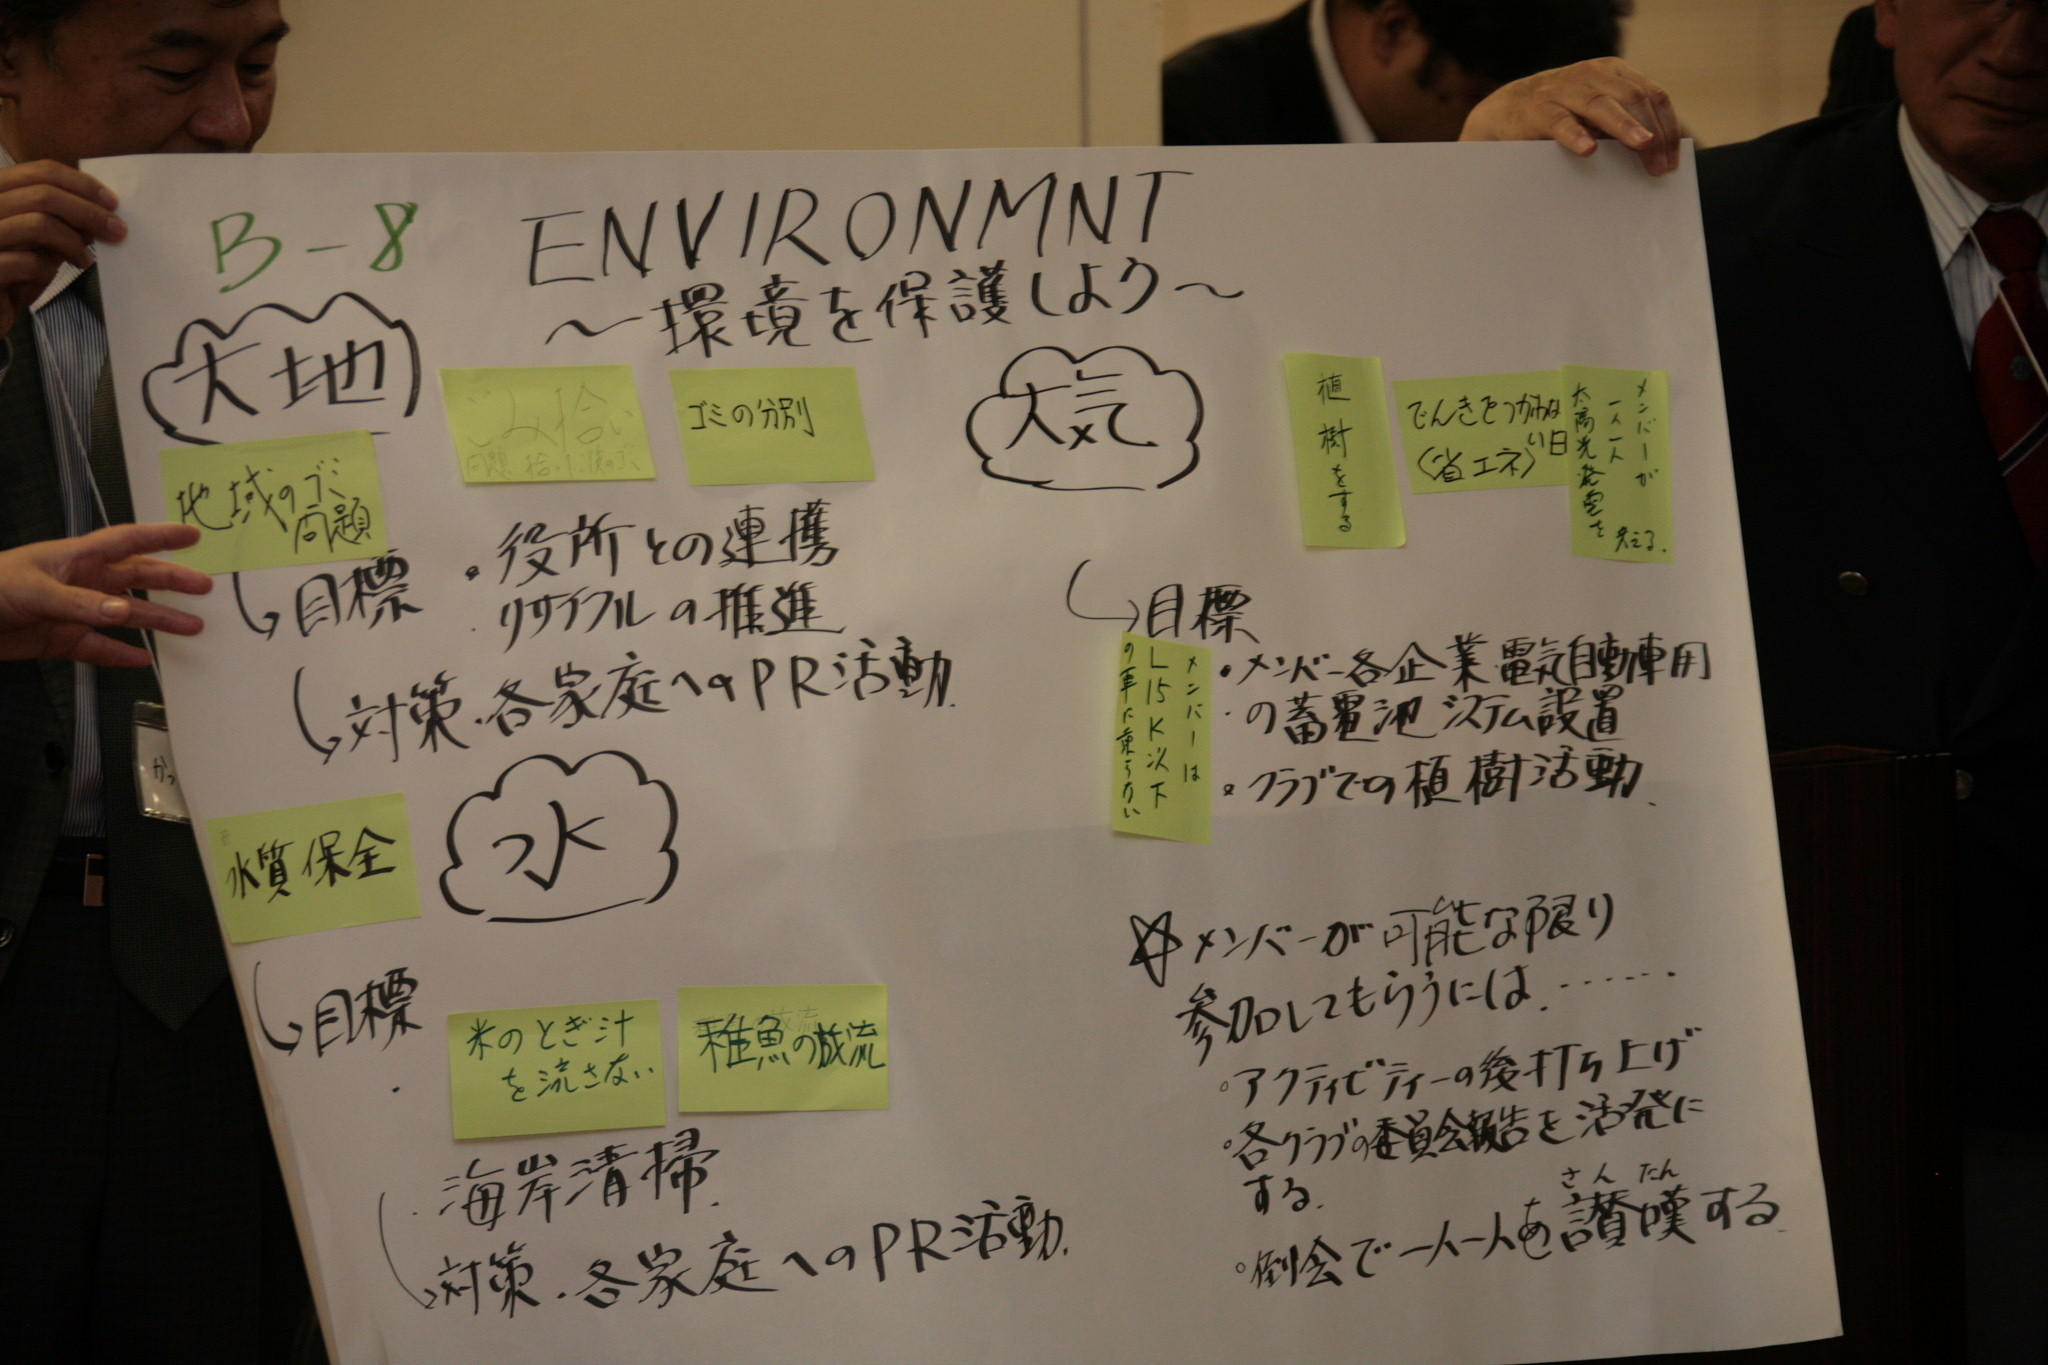 B-8
ENVIRONMNT
～環境を保護しよう～
大地
地域のゴミ
問題
ごみ拾い
ゴミの分別
目標
・役所との連携
・リサイクルの推進
対策・各家庭へのPR活動.
大気
植樹をする
でんきをつかわない日
(省エネ)
メンバーが
一人一人
太陽光発電を
考える.
目標
メンバーは
L15K以下
の車に乗らない
・メンバー各企業電気自動車用
・の蓄電池システム設置
・クラブでの植樹活動.
水
水質保全
目標
米のとぎ汁
を流さない
稚魚の放流
・海岸清掃.
対策・各家庭へのPR活動.
☆メンバーが可能な限り
参加してもらうには.......
・アクティビティーの後打ち上げ
・各クラブの委員会報告を活発に
する.
さんたん
・例会で一人一人を讃嘆する.
かつ